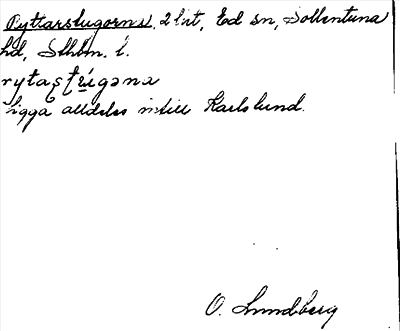 Ryttarstugorna, 2 lht, Ed sn, Sollentuna
hd, Sthlm. l.
rytaʂʈɯ́gəna
ligga alldeles intill Karlslund.
O. Lundberg